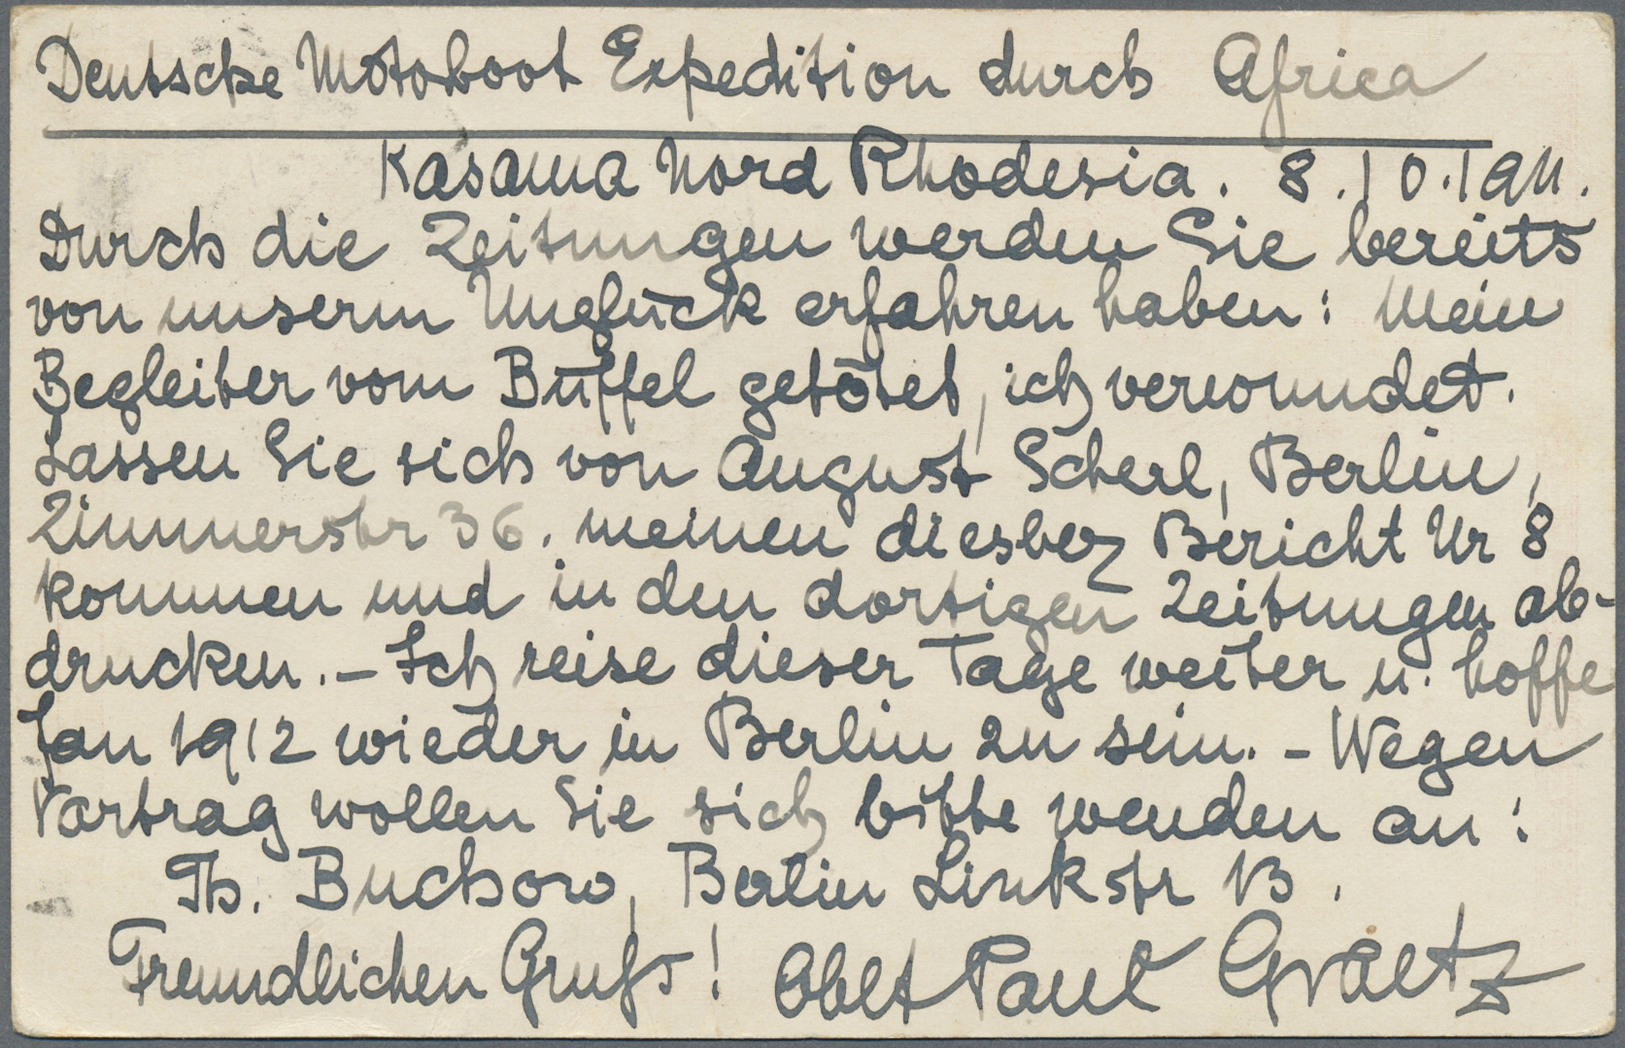 Deutsche Motoboot Expedition durch Africa
Kasama Nord Rhodesia. 8.10.1911.
Durch die Zeitungen werden Sie bereits
von unserm Unglück erfahren haben: Mein
Begleiter vom Büffel getötet, ich verwundet.
Lassen Sie sich von August Scherl, Berlin,
Zimmerstr 36. meinen diesbez Bericht Nr 8
kommen und in den dortigen Zeitungen ab-
drucken. – Ich reise dieser Tage weiter u. hoffe
Jan 1912 wieder in Berlin zu sein. – Wegen
Vortrag wollen Sie sich bitte wenden an:
Th. Buchow, Berlin Linkstr 13.
Freundlichen Gruß! Oblt Paul Graetz